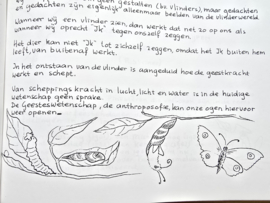 geen gestalten (bv. vlinders), maar gedachten
en gedachten zijn eigenlijk alleenmaar beelden van de vlinderwereld
Wanneer wij een vlinder zien, dan werkt dat net zo op ons als
wanneer wij oprecht "Ik" tegen onszelf zeggen.
Het dier kan niet "Ik" tot zichzelf zeggen, omdat het Ik buiten hem
leeft, van buitenaf werkt.
In het ontstaan van de vlinder is aangeduid hoe de geestkracht
werkt en schept.
Van scheppingskracht in lucht, licht en water is in de huidige
wetenschap geen sprake.
De Geesteswetenschap, de anthroposofie, kan onze ogen hiervoor
weer openen.